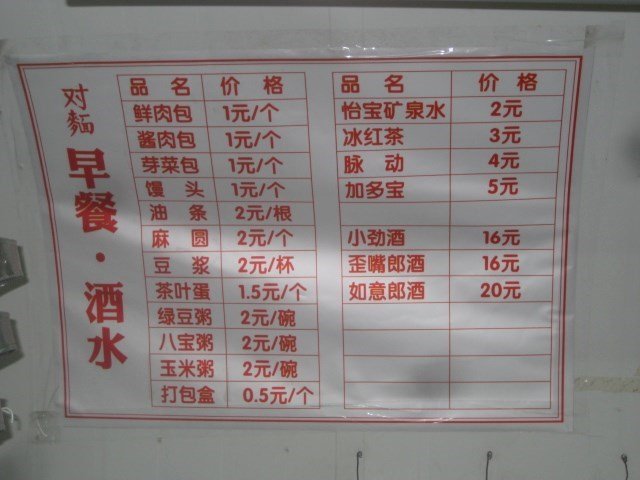 对麵
早餐·酒水
品名 价格
鲜肉包 1元/个
酱肉包 1元/个
芽菜包 1元/个
馒头 1元/个
油条 2元/根
麻圆 2元/个
豆浆 2元/杯
茶叶蛋 1.5元/个
绿豆粥 2元/碗
八宝粥 2元/碗
玉米粥 2元/碗
打包盒 0.5元/个
品名 价格
怡宝矿泉水 2元
冰红茶 3元
脉动 4元
加多宝 5元
小劲酒 16元
歪嘴郎酒 16元
如意郎酒 20元